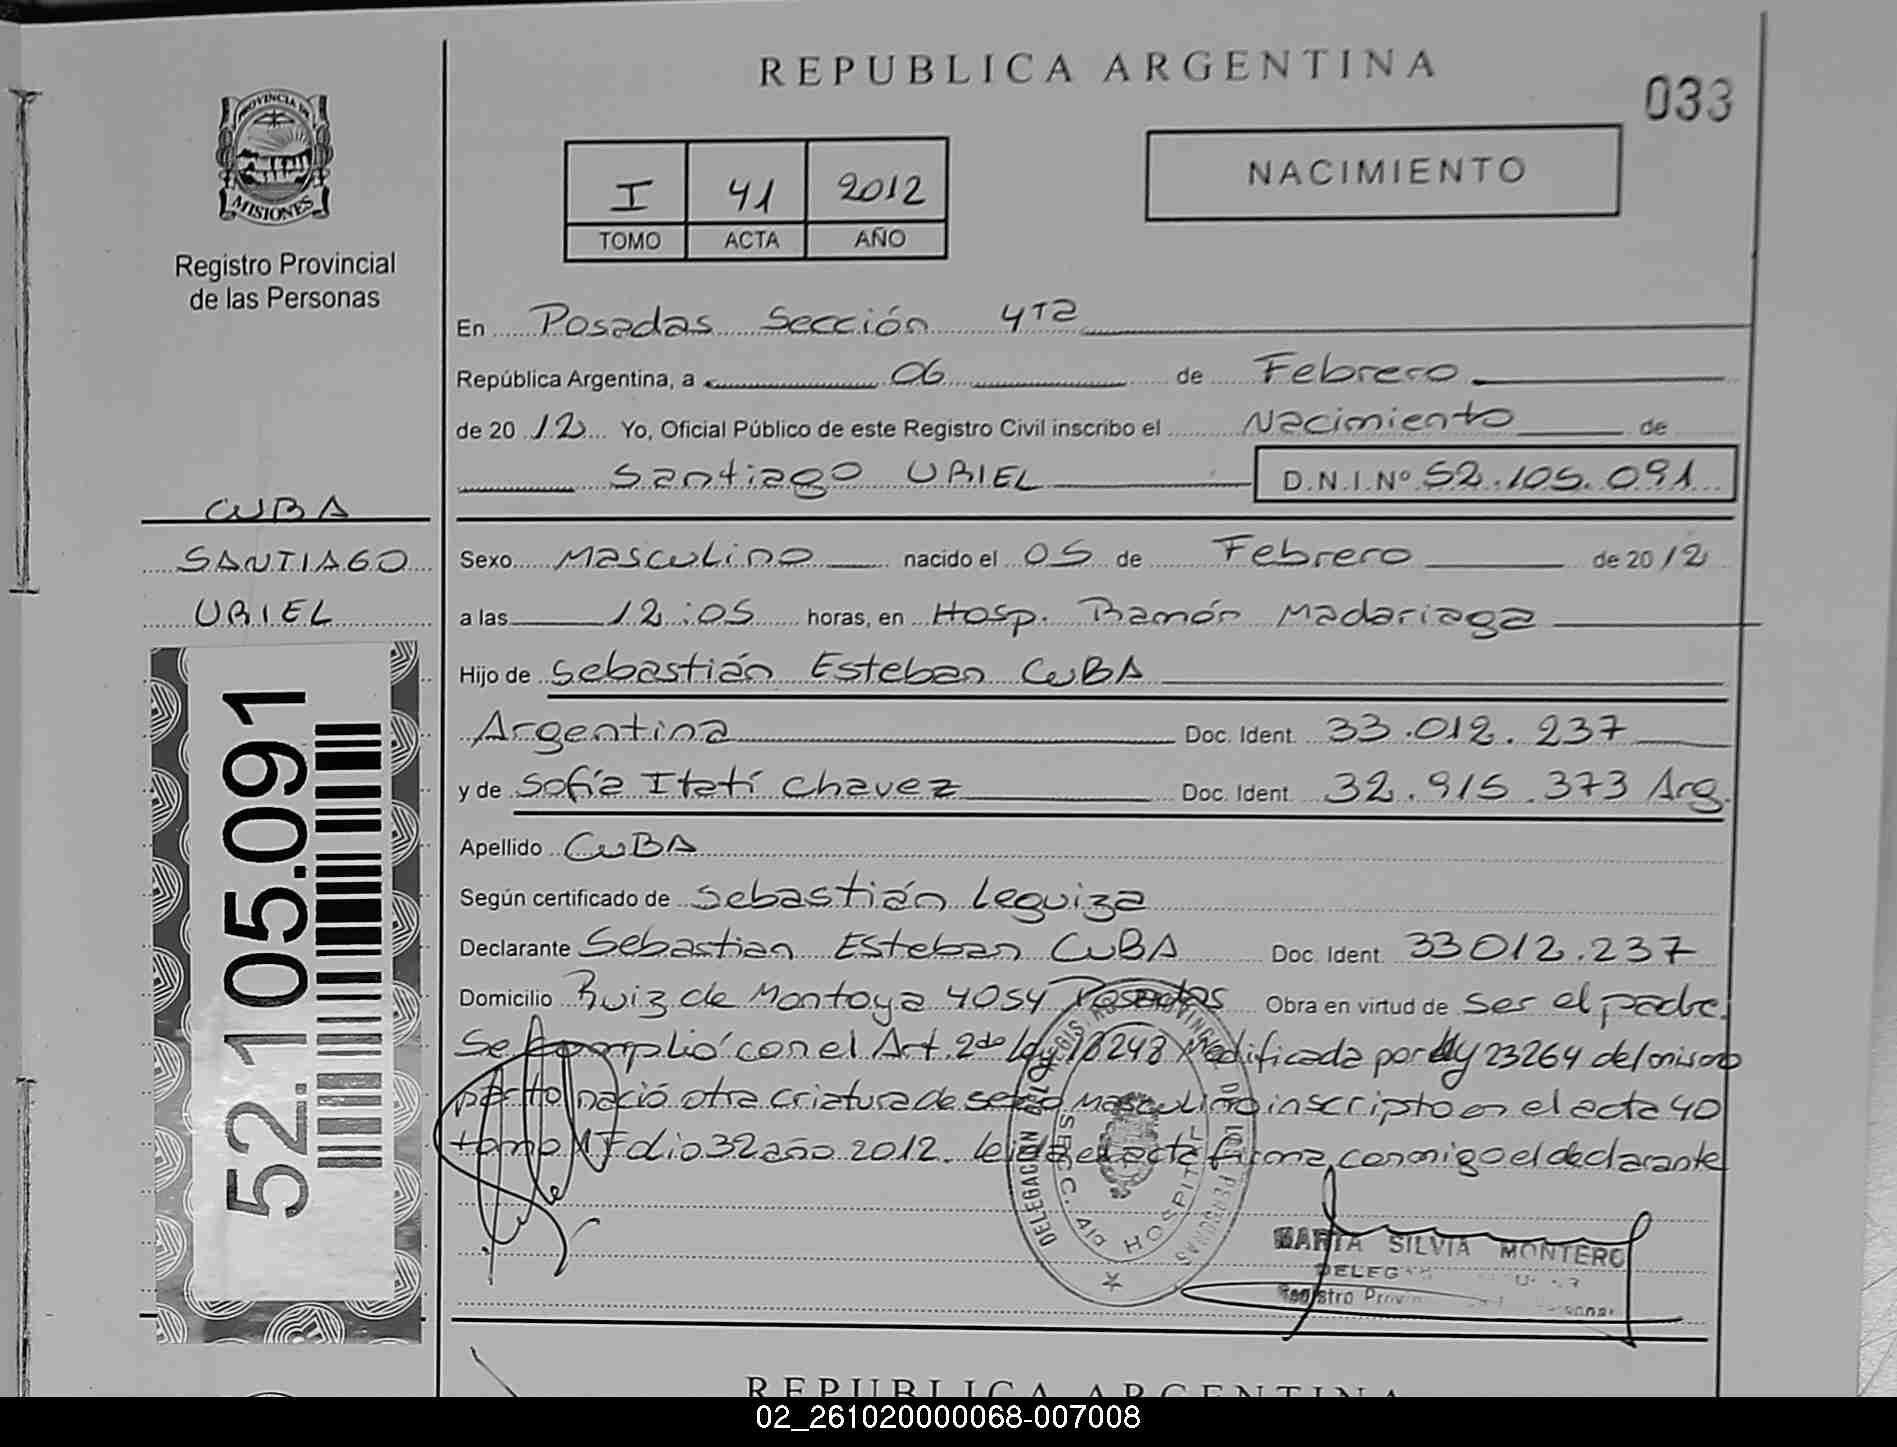 REPUBLICA ARGENTINA
033
PROVINCIA DE
MISIONES
Registro Provincial
de las Personas
I 41 2012
TOMO ACTA AÑO
NACIMIENTO
En Posadas Sección 4ta
República Argentina, a 06 de Febrero
de 2012 Yo, Oficial Público de este Registro Civil inscribo el Nacimiento de
Santiago URIEL D.N.I.Nº 52.105.091
CUBA
SANTIAGO
URIEL
52.105.091
Sexo Masculino nacido el 05 de Febrero de 2012
a las 12:05 horas, en Hosp. Ramón Madariaga
Hijo de Sebastián Esteban CUBA
Argentina Doc. Ident. 33.012.237
y de Sofía Itatí Chavez Doc. Ident. 32.915.373 Arg.
Apellido CUBA
Según certificado de Sebastián Leguiza
Declarante Sebastian Esteban CUBA Doc. Ident. 33012.237
Domicilio Ruiz de Montoya 4054 Posadas Obra en virtud de ser el padre.
Se complió con el Art. 2do ley 18248 Modificada por ley 23264 del mismo
parto nació otra criatura de sexo Masculino inscripto en el acta 40
tomo 1 Folio 32 año 2012. leida el acta firma conmigo el declarante
DELEGACION
SECC. 4ta HOSPITAL
MARTA SILVIA MONTERO
Registro
REPUBLICA ARGENTINA
02_261020000068-007008